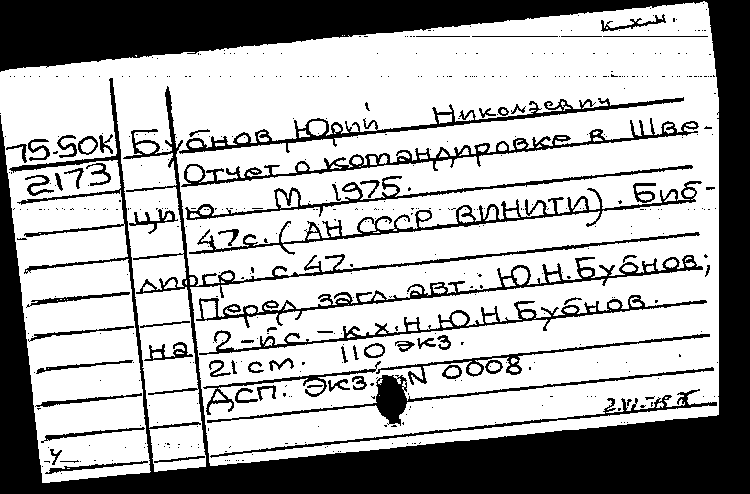 к. х. н.
75.50К Бубнов, Юрий Николаевич
2173 Отчет о командировке в Шве-
цию. М., 1975.
47с. (АН СССР ВИНИТИ). Биб-
лиогр.: с. 47.
Перед загл. авт.: Ю.Н.Бубнов;
на 2-й с. – к.х.н. Ю.Н.Бубнов.
21 см. 110 экз.
ДСП. Экз. N 0008.
Ч